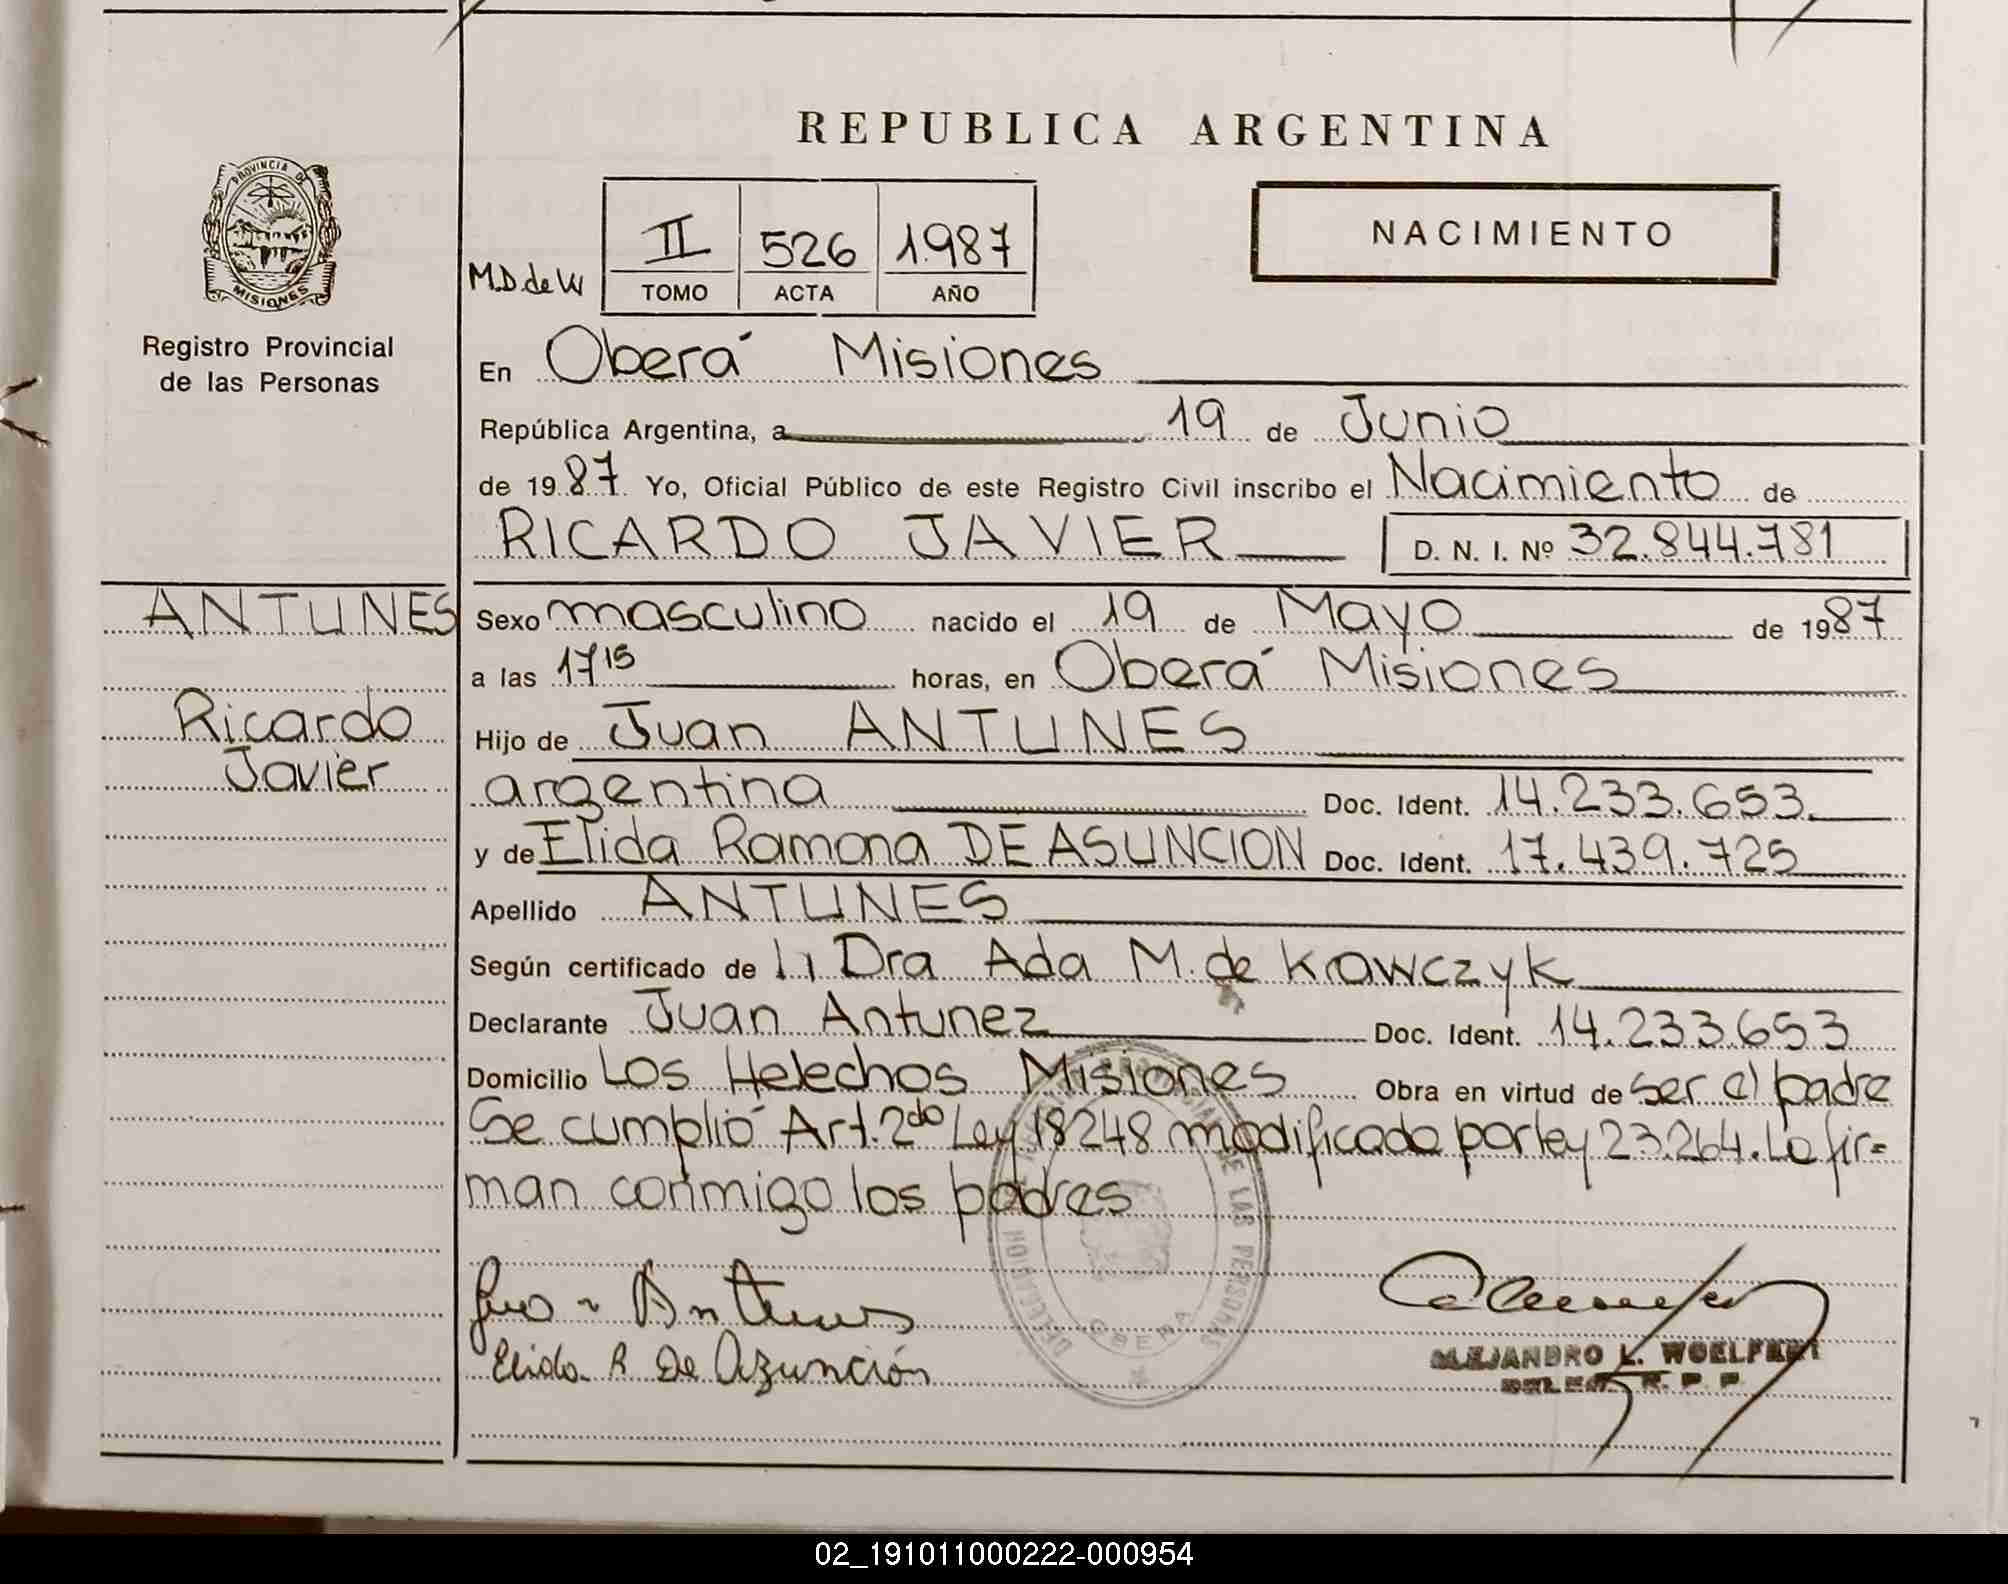 REPUBLICA ARGENTINA
PROVINCIA DE
MISIONES
Registro Provincial
de las Personas
NACIMIENTO
M.D. de W
II 526 1.987
TOMO ACTA AÑO
En Oberá Misiones
República Argentina, a 19 de Junio
de 1987. Yo, Oficial Público de este Registro Civil inscribo el Nacimiento de
RICARDO JAVIER D. N. I. Nº 32.844.781
ANTUNES
Ricardo
Javier
Sexo masculino nacido el 19 de Mayo de 1987
a las 17 15 horas, en Oberá Misiones
Hijo de Juan ANTUNES
argentina Doc. Ident. 14.233.653.
y de Elida Ramona DE ASUNCION Doc. Ident. 17.439.725
Apellido ANTUNES
Según certificado de Dra Ada M. de Kawczyk
Declarante Juan Antunez Doc. Ident. 14.233.653
Domicilio Los Helechos Misiones Obra en virtud de ser el padre
Se cumplió Art. 2do Ley 18248 modificada por ley 23.264. La fir=
man conmigo los padres
Antunes
Elida R De Azunción
DE LAS PERSONAS
OBERA
ALEJANDRO L. WOELFERT
DELEG. R. P. P.
02_191011000222-000954